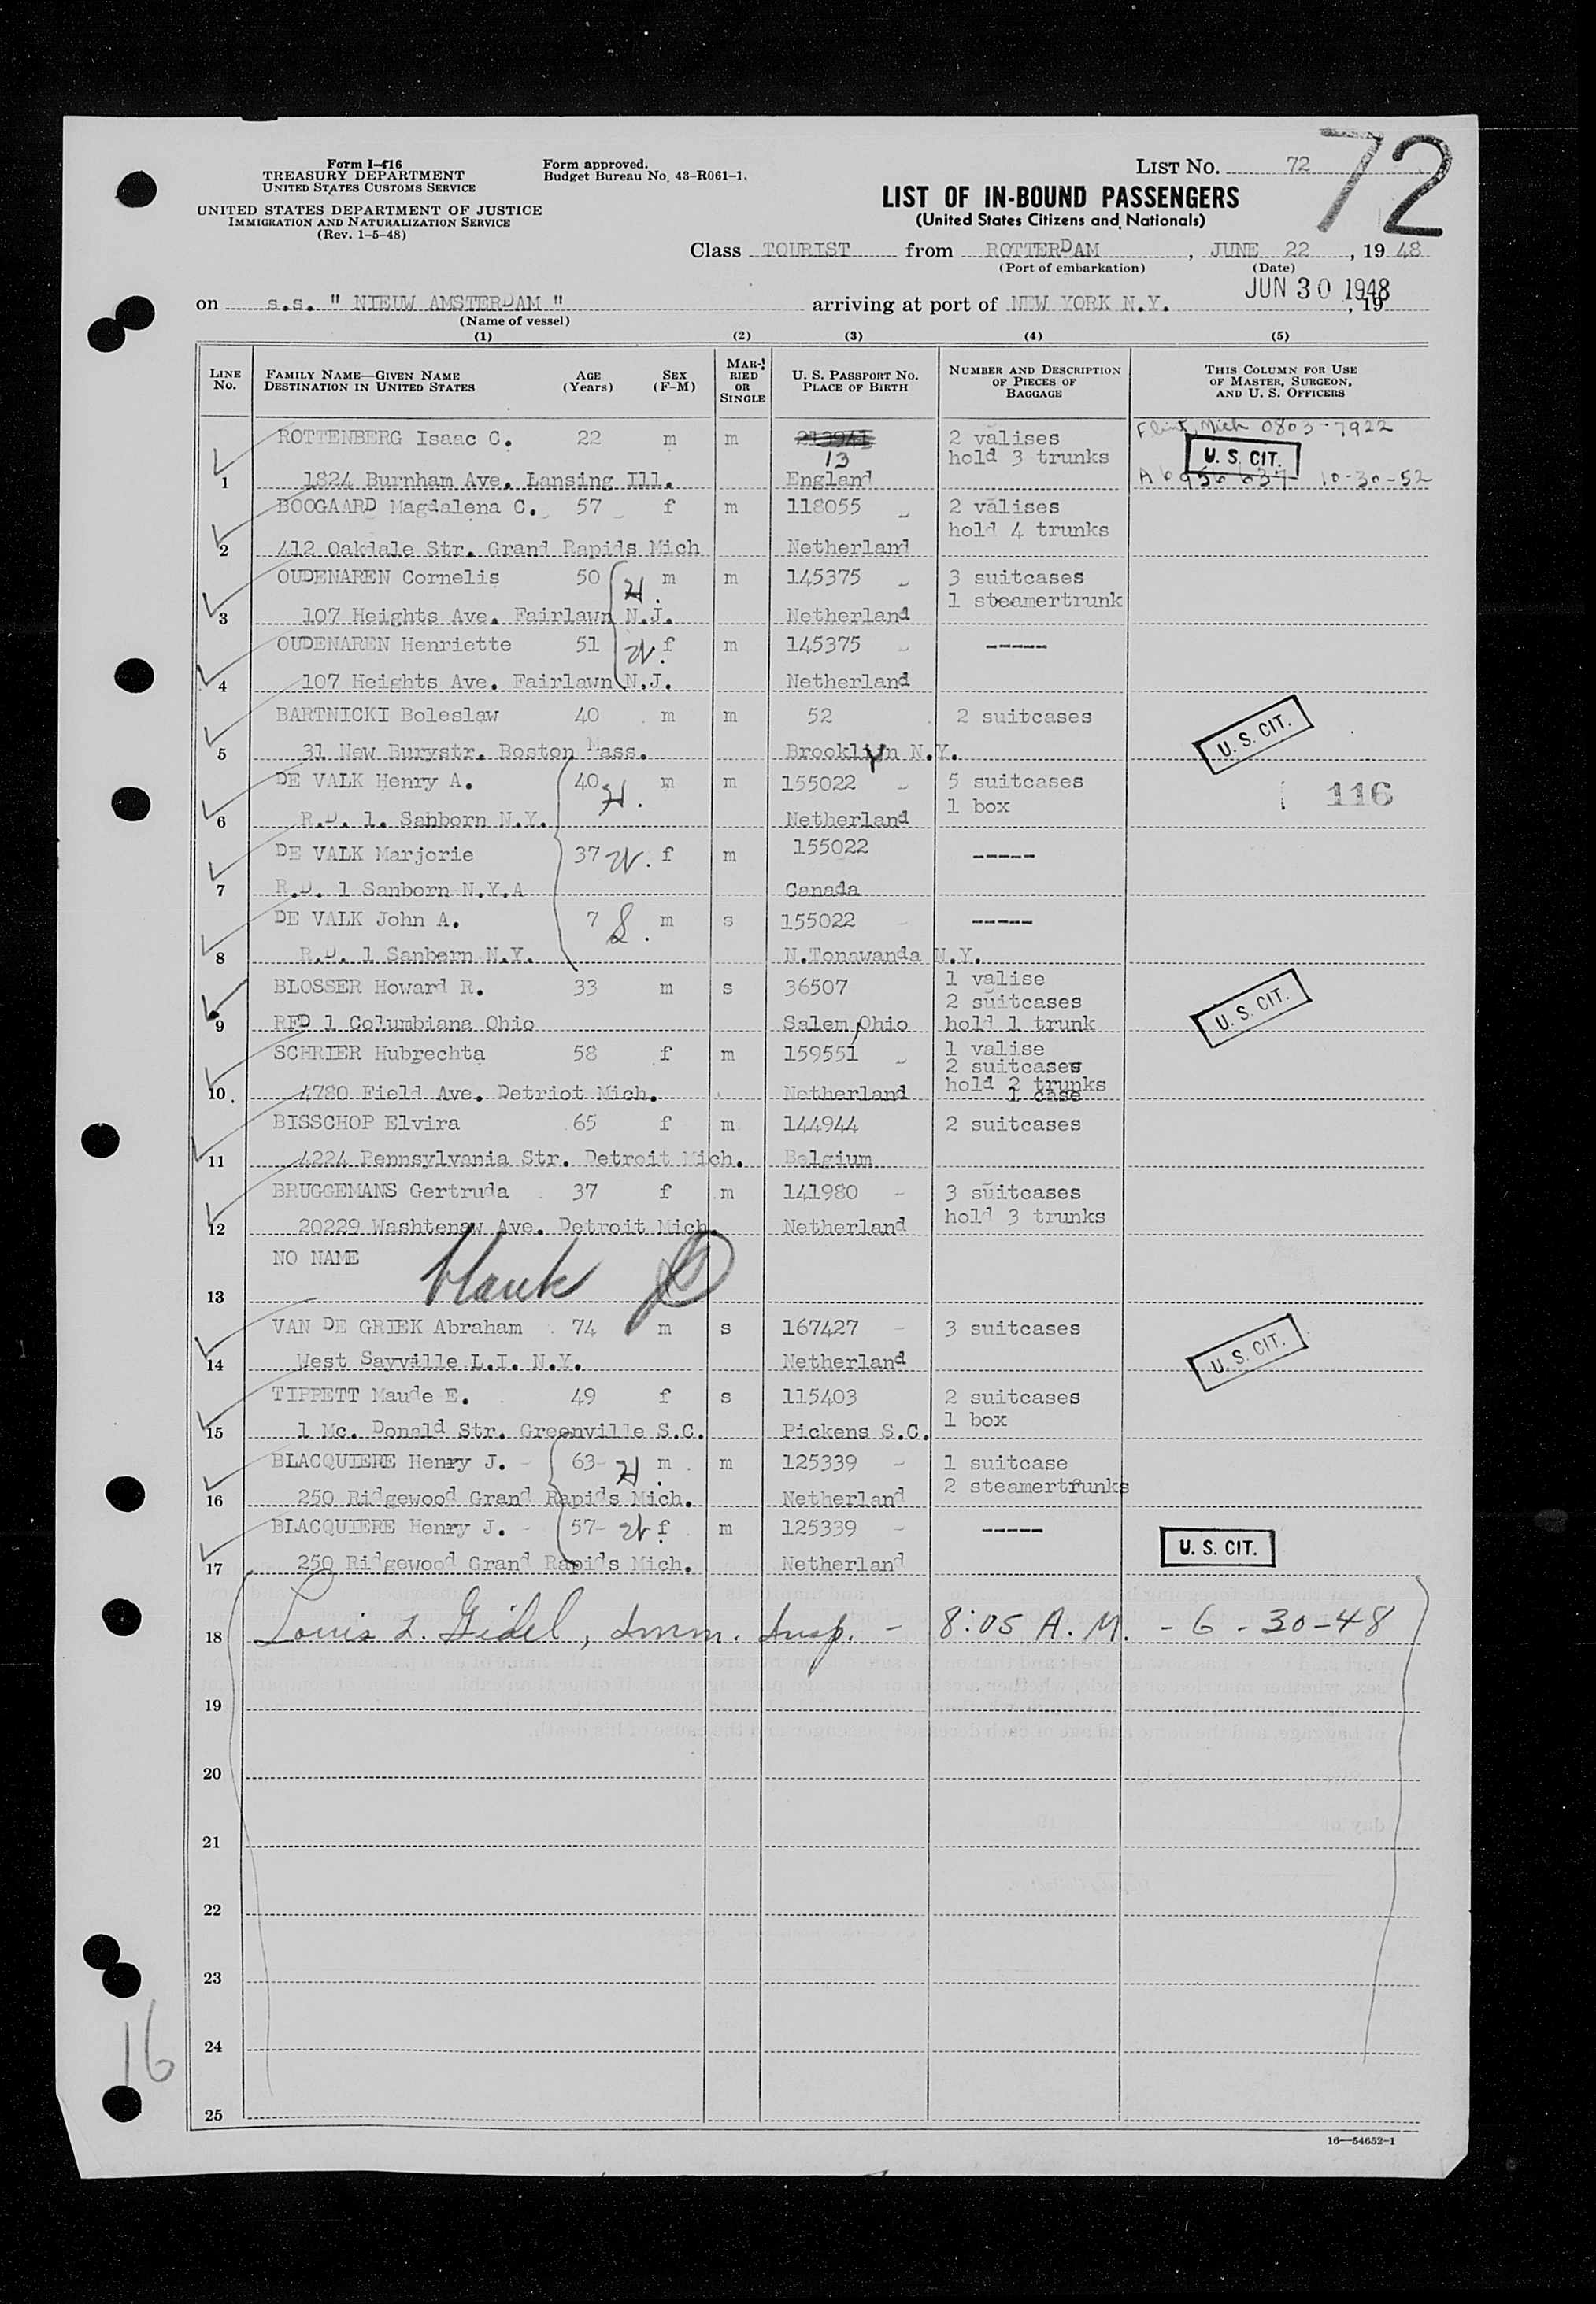 72
Form I-416
TREASURY DEPARTMENT
UNITED STATES CUSTOMS SERVICE
UNITED STATES DEPARTMENT OF JUSTICE
IMMIGRATION AND NATURALIZATION SERVICE
(Rev. 1-5-48)
Form approved.
Budget Bureau No. 43-R061-1.
LIST NO. 72
LIST OF IN-BOUND PASSENGERS
(United States Citizens and Nationals)
Class TOURIST from ROTTERDAM, JUNE 22, 19 48
(Port of embarkation) (Date)
JUN 30 1948
on s.s. " NIEUW AMSTERDAM " arriving at port of NEW YORK N.Y. , 19
(Name of vessel)
(1) (2) (3) (4) (5)
LINE NO. FAMILY NAME—GIVEN NAME DESTINATION IN UNITED STATES AGE (Years) SEX (F-M) MARRIED OR SINGLE U. S. PASSPORT NO. PLACE OF BIRTH NUMBER AND DESCRIPTION OF PIECES OF BAGGAGE THIS COLUMN FOR USE OF MASTER, SURGEON, AND U. S. OFFICERS
ROTTENBERG Isaac C. 22 m m 213941 2 valises Flint, Mich 0803-7922
13 hold 3 trunks U. S. CIT.
1 1824 Burnham Ave. Lansing Ill. England 10-30-52
BOOGAARD Magdalena C. 57 f m 118055 2 valises
hold 4 trunks
2 412 Oakdale Str. Grand Rapids Mich Netherland
OUDENAREN Cornelis 50 H. m m 145375 3 suitcases
1 steamertrunk
3 107 Heights Ave. Fairlawn N.J. Netherland
OUDENAREN Henriette 51 W. f m 145375 -----
4 107 Heights Ave. Fairlawn N.J. Netherland
BARTNICKI Boleslaw 40 m m 52 2 suitcases U. S. CIT.
5 31 New Burystr. Boston Mass. Brooklyn N.Y.
DE VALK Henry A. 40 H. m m 155022 5 suitcases 116
1 box
6 R.D. 1. Sanborn N.Y. Netherland
DE VALK Marjorie 37 W. f m 155022 -----
7 R.D. 1 Sanborn N.Y.A Canada
DE VALK John A. 7 S. m s 155022 -----
8 R.D. 1 Sanbern N.Y. N.Tonawanda N.Y.
BLOSSER Howard R. 33 m s 36507 1 valise
2 suitcases U. S. CIT.
9 RFD 1 Columbiana Ohio Salem, Ohio hold 1 trunk
SCHRIER Hubrechta 58 f m 159551 1 valise
2 suitcases
hold 2 trunks
10 4780 Field Ave. Detriot Mich. Netherland 1 case
BISSCHOP Elvira 65 f m 144944 2 suitcases
11 4224 Pennsylvania Str. Detroit Mich. Belgium
BRUGGEMANS Gertruda 37 f m 141980 3 suitcases
hold 3 trunks
12 20229 Washtenaw Ave. Detroit Mich. Netherland
NO NAME
13 blank
VAN DE GRIEK Abraham 74 m s 167427 3 suitcases
14 West Sayville L.I. N.Y. Netherland U. S. CIT.
TIPPETT Maude E. 49 f s 115403 2 suitcases
1 box
15 1 Mc. Donald Str. Greenville S.C. Pickens S.C.
BLACQUIERE Henry J. 63 H. m m 125339 1 suitcase
2 steamertrunks
16 250 Ridgewood Grand Rapids Mich. Netherland
BLACQUIERE Henry J. 57 W f m 125339 -----
U. S. CIT.
17 250 Ridgewood Grand Rapids Mich. Netherland
18 Louis L. Gidel, Imm. Insp. - 8:05 A.M. - 6-30-48
19
20
21
22
23
24
25
16
16—54652-1